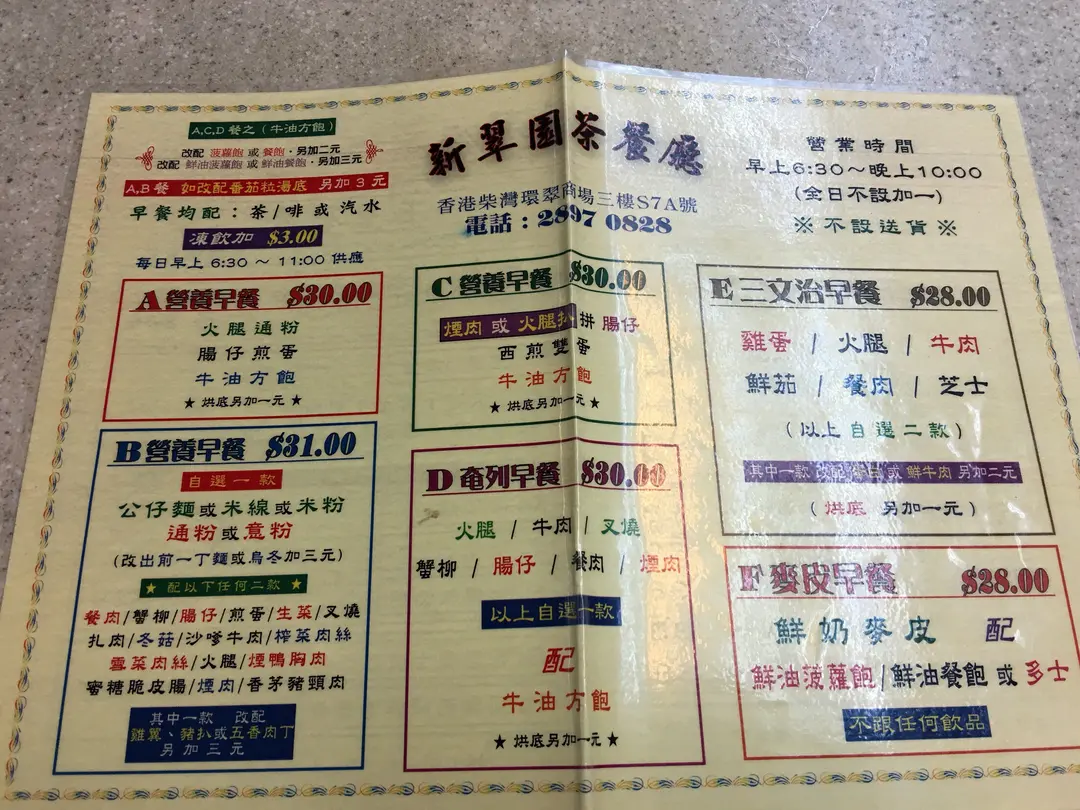 A,C,D 餐之(牛油方飽)
改配 菠蘿飽 或 餐飽,另加二元
改配 鮮油菠蘿飽 或 鮮油餐飽,另加三元
A,B 餐 如改配番茄粒湯底 另加 3 元
早餐均配:茶/啡 或 汽水
凍飲加 $3.00
每日早上 6:30 ~ 11:00 供應
新翠園茶餐廳
香港柴灣環翠商場三樓S7A號
電話:2897 0828
營業時間
早上6:30~晚上10:00
(全日不設加一)
※ 不設送貨 ※
A 營養早餐 $30.00
火腿通粉
腸仔煎蛋
牛油方飽
★ 烘底另加一元 ★
B 營養早餐 $31.00
自選一款
公仔麵或米線或米粉
通粉或意粉
(改出前一丁麵或烏冬加三元)
★ 配以下任何二款 ★
餐肉/蟹柳/腸仔/煎蛋/生菜/叉燒
扎肉/冬菇/沙嗲牛肉/榨菜肉絲
雪菜肉絲/火腿/煙鴨胸肉
蜜糖脆皮腸/煙肉/香茅豬頸肉
其中一款 改配
雞翼、豬扒或五香肉丁
另加三元
C 營養早餐 $30.00
煙肉 或 火腿扒 拼 腸仔
西煎雙蛋
牛油方飽
★ 烘底另加一元 ★
D 奄列早餐 $30.00
火腿 / 牛肉 / 叉燒
蟹柳 / 腸仔 / 餐肉 / 煙肉
以上自選一款
配
牛油方飽
★ 烘底另加一元 ★
E 三文治早餐 $28.00
雞蛋 / 火腿 / 牛肉
鮮茄 / 餐肉 / 芝士
(以上自選二款)
其中一款 改配 或 鮮牛肉 另加二元
(烘底 另加一元)
F 麥皮早餐 $28.00
鮮奶麥皮 配
鮮油菠蘿飽/鮮油餐飽 或 多士
不跟任何飲品